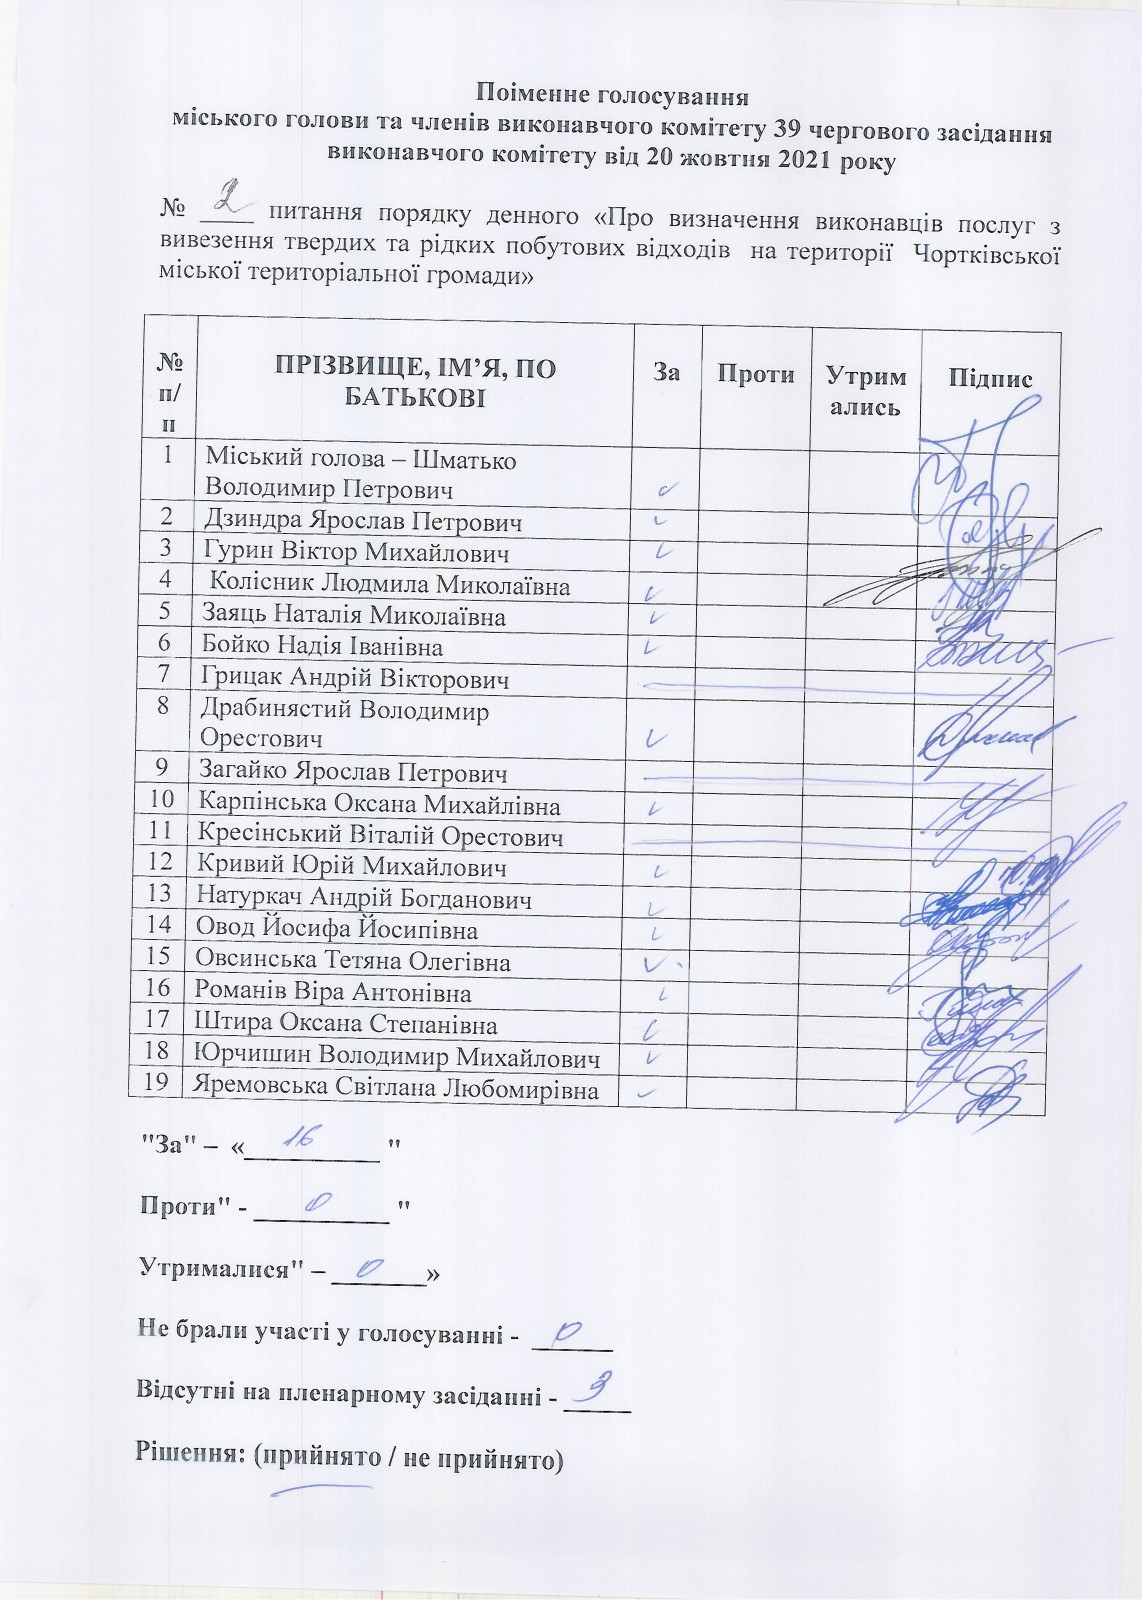 Поіменне голосування
міського голови та членів виконавчого комітету 39 чергового засідання
виконавчого комітету від 20 жовтня 2021 року
№ 2 питання порядку денного «Про визначення виконавців послуг з
вивезення твердих та рідких побутових відходів на території Чортківської
міської територіальної громади»
№ п/п ПРІЗВИЩЕ, ІМ’Я, ПО БАТЬКОВІ За Проти Утрим ались Підпис
1 Міський голова – Шматько
Володимир Петрович
2 Дзиндра Ярослав Петрович
3 Гурин Віктор Михайлович
4 Колісник Людмила Миколаївна
5 Заяць Наталія Миколаївна
6 Бойко Надія Іванівна
7 Грицак Андрій Вікторович
8 Драбинястий Володимир
Орестович
9 Загайко Ярослав Петрович
10 Карпінська Оксана Михайлівна
11 Кресінський Віталій Орестович
12 Кривий Юрій Михайлович
13 Натуркач Андрій Богданович
14 Овод Йосифа Йосипівна
15 Овсинська Тетяна Олегівна
16 Романів Віра Антонівна
17 Штира Оксана Степанівна
18 Юрчишин Володимир Михайлович
19 Яремовська Світлана Любомирівна
"За" – «16"
Проти" - 0"
Утрималися" – 0»
Не брали участі у голосуванні - 0
Відсутні на пленарному засіданні - 3
Рішення: (прийнято / не прийнято)